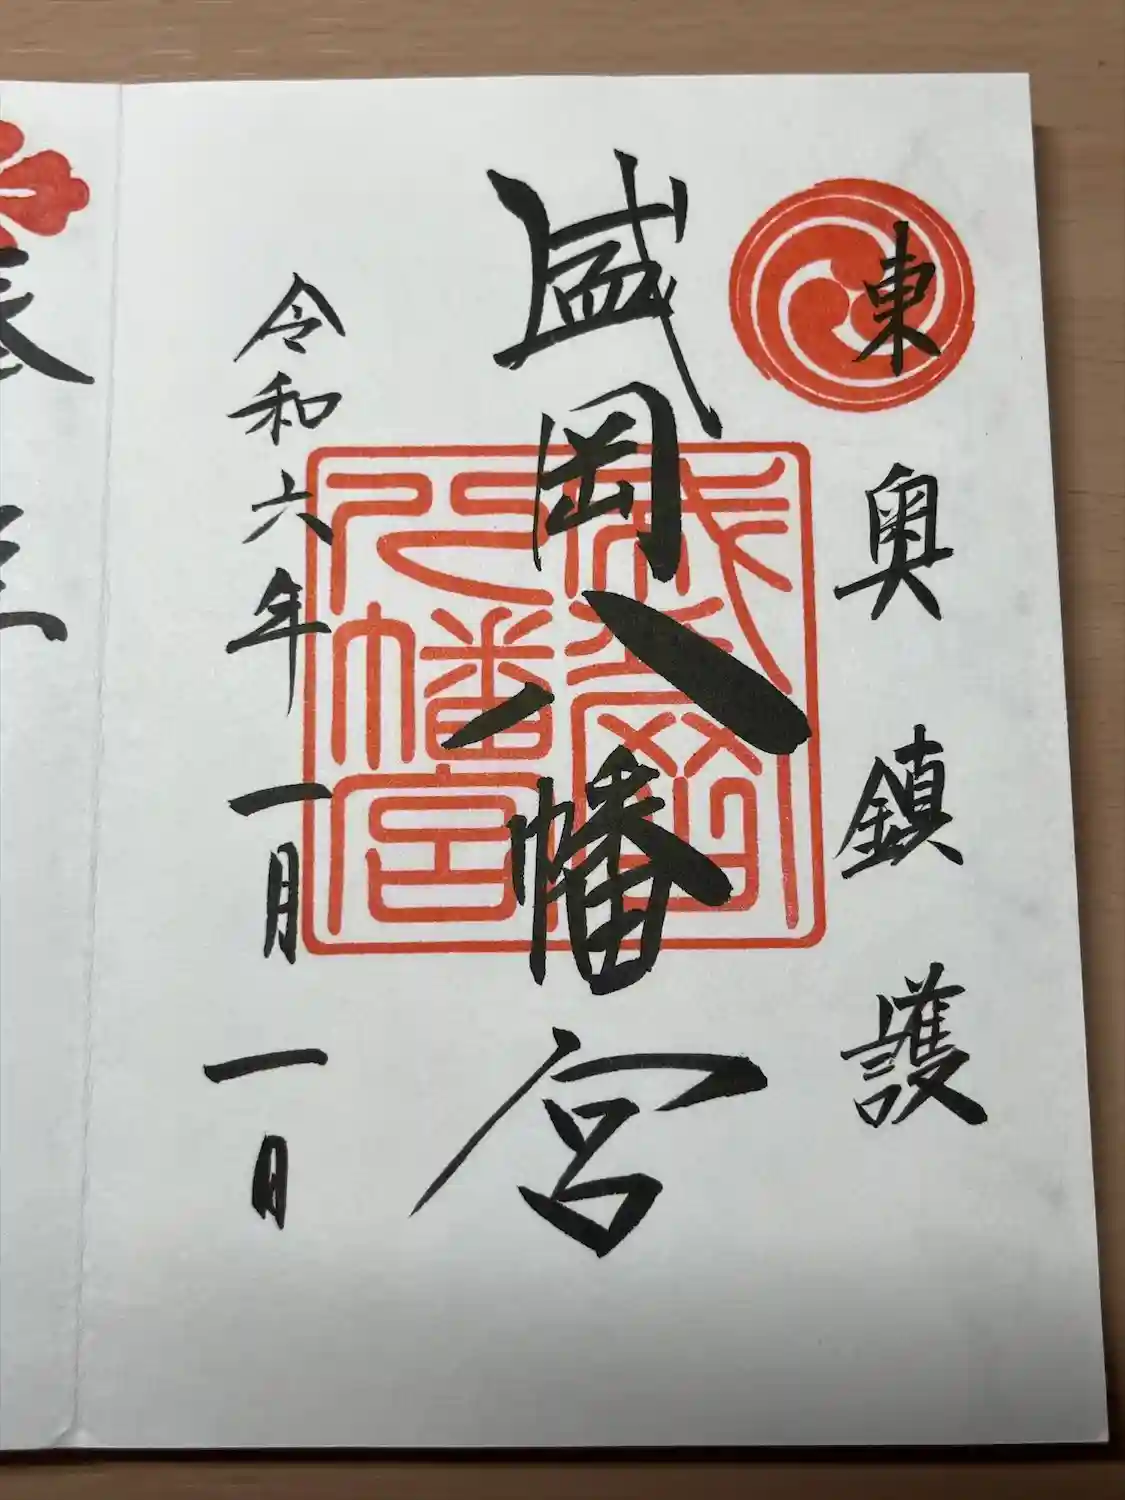 東奥鎮護
盛岡八幡宮
盛岡八幡宮
令和六年一月一日